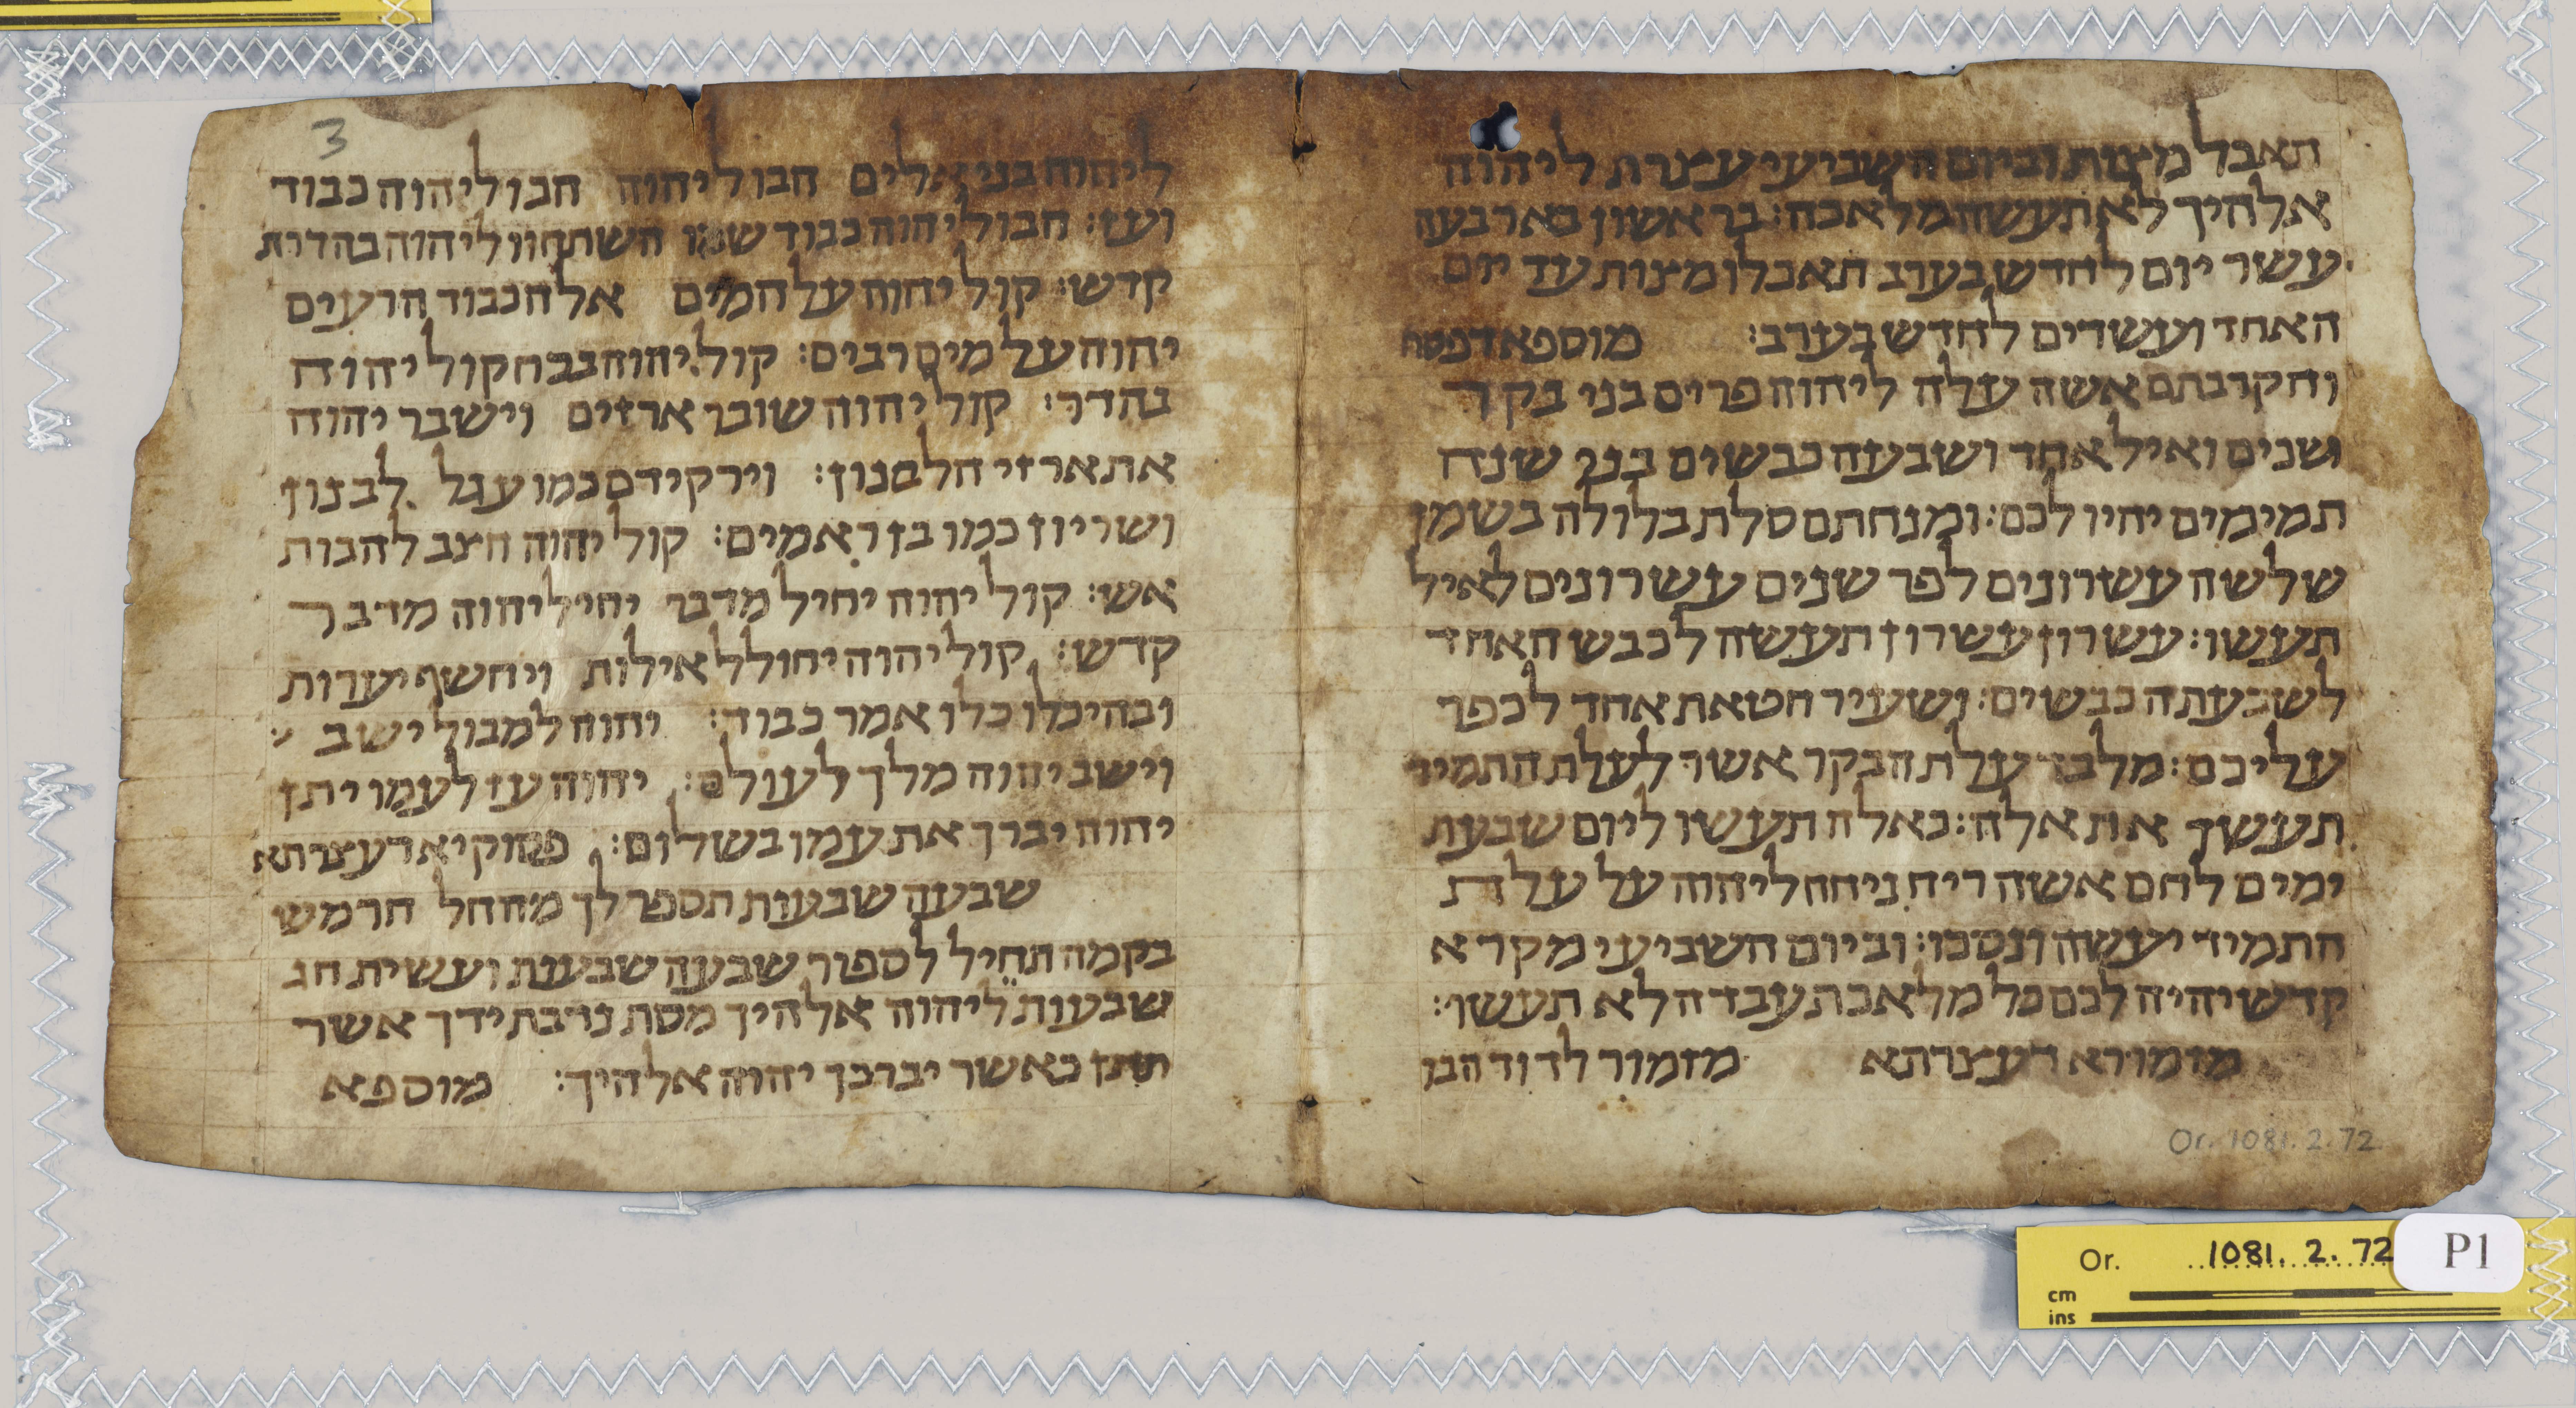 תאכל מצות וביום השביעי עצרת ליהוה
אלהיך לא תעשה מלאכה: בראשון בארבעה
עשר יום לחדש בערב תאכלו מצות עד יום
האחד ועשרים לחדש בערב: מוספא דפסח
והקרבתם אשה עלה ליהוה פרים בני בקר
שנים ואיל אחד ושבעה כבשים בני שנה
תמימים יהיו לכם: ומנחתם סלת בלולה בשמן
שלשה עשרונים לפר שנים עשרונים לאיל
תעשו: עשרון עשרון תעשה לכבש האחד
לשבעת ה כבשים: ושעיר חטאת אחד לכפר
עליכם: מלבד עלת הבקר אשר לעלת התמיד
תעשו את אלה: כאלה תעשו ליום שבעת
ימים לחם אשה ריח ניחח ליהוה על עלת
התמיד יעשה ונסכו: וביום השביעי מקרא
קדש יהיה לכם כל מלאכת עבדה לא תעשו:
מזמורא דעצרתא מזמור לדוד הבו
3
ליהוה בני אלים הבו ליהוה הבו ליהוה כבוד
ועז: הבו ליהוה כבוד שמו השתחוו ליהוה בהדרת
קדש: קול יהוה על המים אל הכבוד הרעים
יהוה על מים רבים: קול יהוה בכח קול יהוה
בהדר: קול יהוה שובר ארזים וישבר יהוה
את ארזי הלבנון: וירקידם כמו עגל לבנון
ושריון כמו בן ראמים: קול יהוה חצב להבות
אש: קול יהוה יחיל מדבר יחיל יהוה מדבר
קדש: קול יהוה יחולל אילות ויחשף יערות
ובהיכלו כלו אמר כבוד: יהוה למבול ישב
וישב יהוה מלך לעולם: יהוה עז לעמו יתן
יהוה יברך את עמו בשלום: פסוקיא דעצרתא
שבעה שבעות תספר לך מהחל חרמש
בקמה תחיל לספור שבעה שבעות ועשית חג
שבעות ליהוה אלהיך מסת נדבת ידך אשר
תתן כאשר יברכך יהוה אלהיך: מוספא
Or. 1081.2.72
Or. 1081. 2. 72
P1
cm
ins